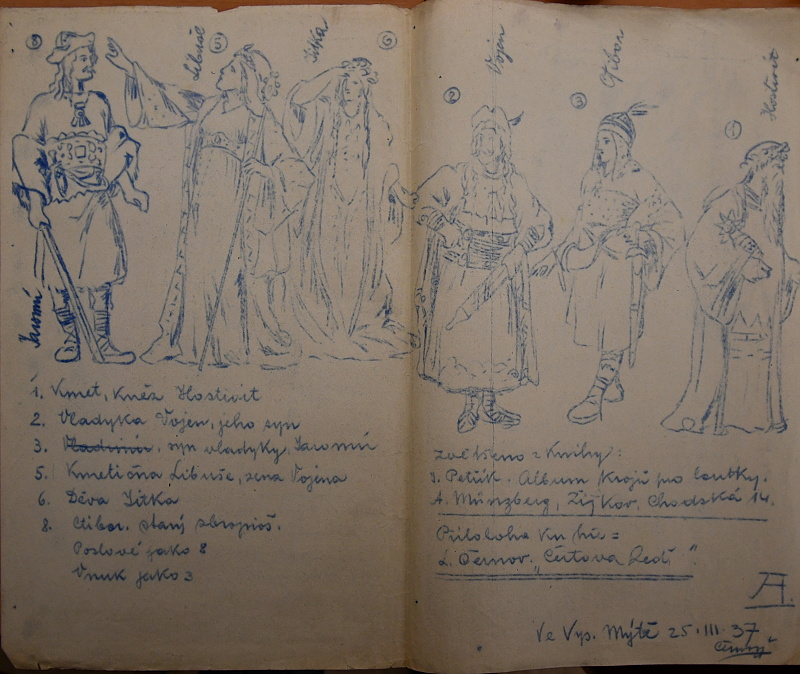 8
Libuše
5
Jitka
6
2
Vojen
3
Ctibor
1
Hostivít
Jaromír
1. Kmet, kněz Hostivít
2. Vladyka Vojen, jeho syn
3. Vladimír, syn vladyky, Jaromír
5. Kmetična Libuše, žena Vojena
6. Děva Jitka
8. Ctibor. starý zbrojnoš.
Poslové jako 8
Vnuk jako 3
zvětšeno z knihy:
J. Petrůk. Album krojů pro loutky.
A. Münzberg, Žižkov, Chodská 14.
Příloha ku hře =
L. Černov. „Čertova
A.
Ve Vys. Mýtě 25.III.37